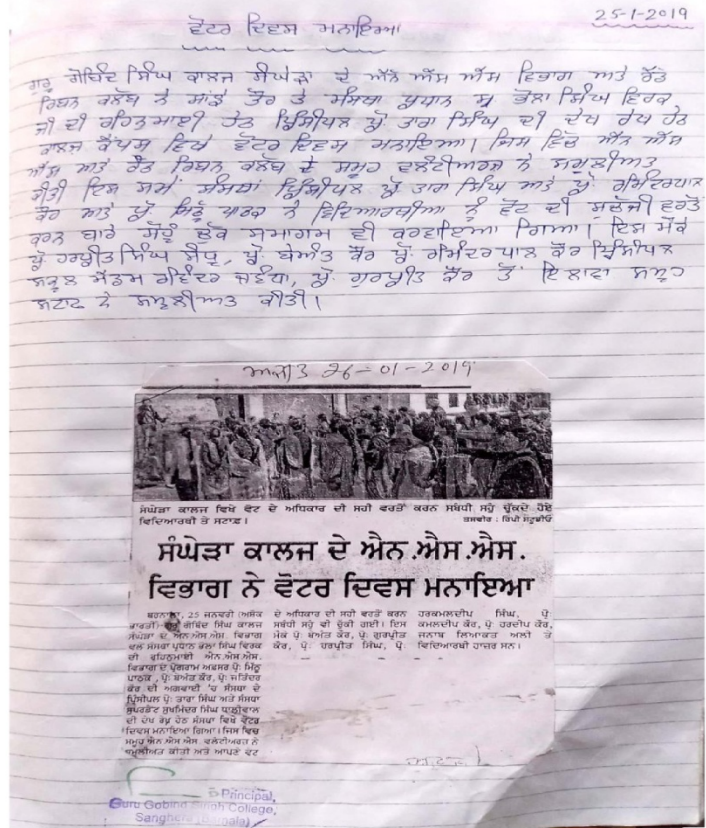 25-1-2019
ਵੋਟਰ ਦਿਵਸ ਮਨਾਇਆ
ਗੁਰੂ ਗੋਬਿੰਦ ਸਿੰਘ ਕਾਲਜ ਸੰਘੇੜਾ ਦੇ ਐੱਨ ਐੱਸ ਐੱਸ ਵਿਭਾਗ ਅਤੇ ਰੈੱਡ
ਰਿਬਨ ਕਲੱਬ ਨੇ ਸਾਂਝੇ ਤੌਰ ਤੇ ਸੰਸਥਾ ਪ੍ਰਧਾਨ ਸ੍ਰ ਭੋਲਾ ਸਿੰਘ ਵਿਰਕ
ਜੀ ਦੀ ਰਹਿਨੁਮਾਈ ਹੇਠ ਪ੍ਰਿੰਸੀਪਲ ਪ੍ਰੋ. ਤਾਰਾ ਸਿੰਘ ਦੀ ਦੇਖ ਰੇਖ ਹੇਠ
ਕਾਲਜ ਕੈਂਪਸ ਵਿਖੇ ਵੋਟਰ ਦਿਵਸ ਮਨਾਇਆ। ਜਿਸ ਵਿੱਚ ਐੱਨ ਐੱਸ
ਐੱਸ ਅਤੇ ਰੈੱਡ ਰਿਬਨ ਕਲੱਬ ਦੇ ਸਮੂਹ ਵਲੰਟੀਅਰਜ਼ ਨੇ ਸਮੂਲੀਅਤ
ਕੀਤੀ ਇਸ ਸਮੇਂ ਸੰਸਥਾ ਪ੍ਰਿੰਸੀਪਲ ਪ੍ਰੋ ਤਾਰਾ ਸਿੰਘ ਅਤੇ ਪ੍ਰੋ. ਰਮਿੰਦਰਪਾਲ
ਕੌਰ ਅਤੇ ਪ੍ਰੋ. ਮਿੱਠੂ ਪਾਠਕ ਨੇ ਵਿਦਿਆਰਥੀਆਂ ਨੂੰ ਵੋਟ ਦੀ ਸੁਚੱਜੀ ਵਰਤੋਂ
ਕਰਨ ਬਾਰੇ ਸੌਂਹੁ ਚੁੱਕ ਸਮਾਗਮ ਵੀ ਕਰਵਾਇਆ ਗਿਆ। ਇਸ ਮੌਕੇ
ਪ੍ਰੋ ਹਰਪ੍ਰੀਤ ਸਿੰਘ ਸੰਧੂ, ਪ੍ਰੋ. ਬੇਅੰਤ ਕੌਰ ਪ੍ਰੋ. ਰਮਿੰਦਰਪਾਲ ਕੌਰ ਪ੍ਰਿੰਸੀਪਲ
ਸਕੂਲ ਮੈਡਮ ਰਵਿੰਦਰ ਜਵੰਧਾ, ਪ੍ਰੋ. ਗੁਰਪ੍ਰੀਤ ਕੌਰ ਤੋਂ ਇਲਾਵਾ ਸਮੂਹ
ਸਟਾਫ ਨੇ ਸਮੂਲੀਅਤ ਕੀਤੀ।
ਅਜੀਤ 26-01-2019
ਸੰਘੇੜਾ ਕਾਲਜ ਵਿਖੇ ਵੋਟ ਦੇ ਅਧਿਕਾਰ ਦੀ ਸਹੀ ਵਰਤੋਂ ਕਰਨ ਸਬੰਧੀ ਸਹੁੰ ਚੁੱਕਦੇ ਹੋਏ
ਵਿਦਿਆਰਥੀ ਤੇ ਸਟਾਫ਼। ਤਸਵੀਰ : ਰਿੰਪੀ ਸਟੂਡੀਓ
ਸੰਘੇੜਾ ਕਾਲਜ ਦੇ ਐਨ.ਐਸ.ਐਸ.
ਵਿਭਾਗ ਨੇ ਵੋਟਰ ਦਿਵਸ ਮਨਾਇਆ
ਬਰਨਾਲਾ, 25 ਜਨਵਰੀ (ਅਸ਼ੋਕ
ਭਾਰਤੀ)-ਗੁਰੂ ਗੋਬਿੰਦ ਸਿੰਘ ਕਾਲਜ
ਸੰਘੇੜਾ ਦੇ ਐਨ.ਐਸ.ਐਸ. ਵਿਭਾਗ
ਵਲੋਂ ਸੰਸਥਾ ਪ੍ਰਧਾਨ ਭੋਲਾ ਸਿੰਘ ਵਿਰਕ
ਦੀ ਰਹਿਨੁਮਾਈ ਐਨ.ਐਸ.ਐਸ.
ਵਿਭਾਗ ਦੇ ਪ੍ਰੋਗਰਾਮ ਅਫ਼ਸਰ ਪ੍ਰੋ: ਮਿੱਠੂ
ਪਾਠਕ, ਪ੍ਰੋ: ਬੇਅੰਤ ਕੌਰ, ਪ੍ਰੋ: ਜਤਿੰਦਰ
ਕੌਰ ਦੀ ਅਗਵਾਈ 'ਚ ਸੰਸਥਾ ਦੇ
ਪ੍ਰਿੰਸੀਪਲ ਪ੍ਰੋ: ਤਾਰਾ ਸਿੰਘ ਅਤੇ ਸੰਸਥਾ
ਸੁਪਰਡੈਂਟ ਸੁਖਮਿੰਦਰ ਸਿੰਘ ਧਾਲੀਵਾਲ
ਦੀ ਦੇਖ ਰੇਖ ਹੇਠ ਸੰਸਥਾ ਵਿਖੇ ਵੋਟਰ
ਦਿਵਸ ਮਨਾਇਆ ਗਿਆ। ਜਿਸ ਵਿਚ
ਸਮੂਹ ਐਨ.ਐਸ.ਐਸ. ਵਲੰਟੀਅਰਾਂ ਨੇ
ਸ਼ਮੂਲੀਅਤ ਕੀਤੀ ਅਤੇ ਆਪਣੇ ਵੋਟ
ਦੇ ਅਧਿਕਾਰ ਦੀ ਸਹੀ ਵਰਤੋਂ ਕਰਨ
ਸਬੰਧੀ ਸਹੁੰ ਵੀ ਚੁੱਕੀ ਗਈ। ਇਸ
ਮੌਕੇ ਪ੍ਰੋ: ਬੇਅੰਤ ਕੌਰ, ਪ੍ਰੋ: ਗੁਰਪ੍ਰੀਤ
ਕੌਰ, ਪ੍ਰੋ: ਹਰਪ੍ਰੀਤ ਸਿੰਘ, ਪ੍ਰੋ:
ਹਰਕਮਲਦੀਪ ਸਿੰਘ, ਪ੍ਰੋ:
ਕਮਲਦੀਪ ਕੌਰ, ਪ੍ਰੋ: ਹਰਦੀਪ ਕੌਰ,
ਜਨਾਬ ਲਿਆਕਤ ਅਲੀ ਤੇ
ਵਿਦਿਆਰਥੀ ਹਾਜ਼ਰ ਸਨ।
Principal,
Guru Gobind Singh College,
Sanghera (Barnala)